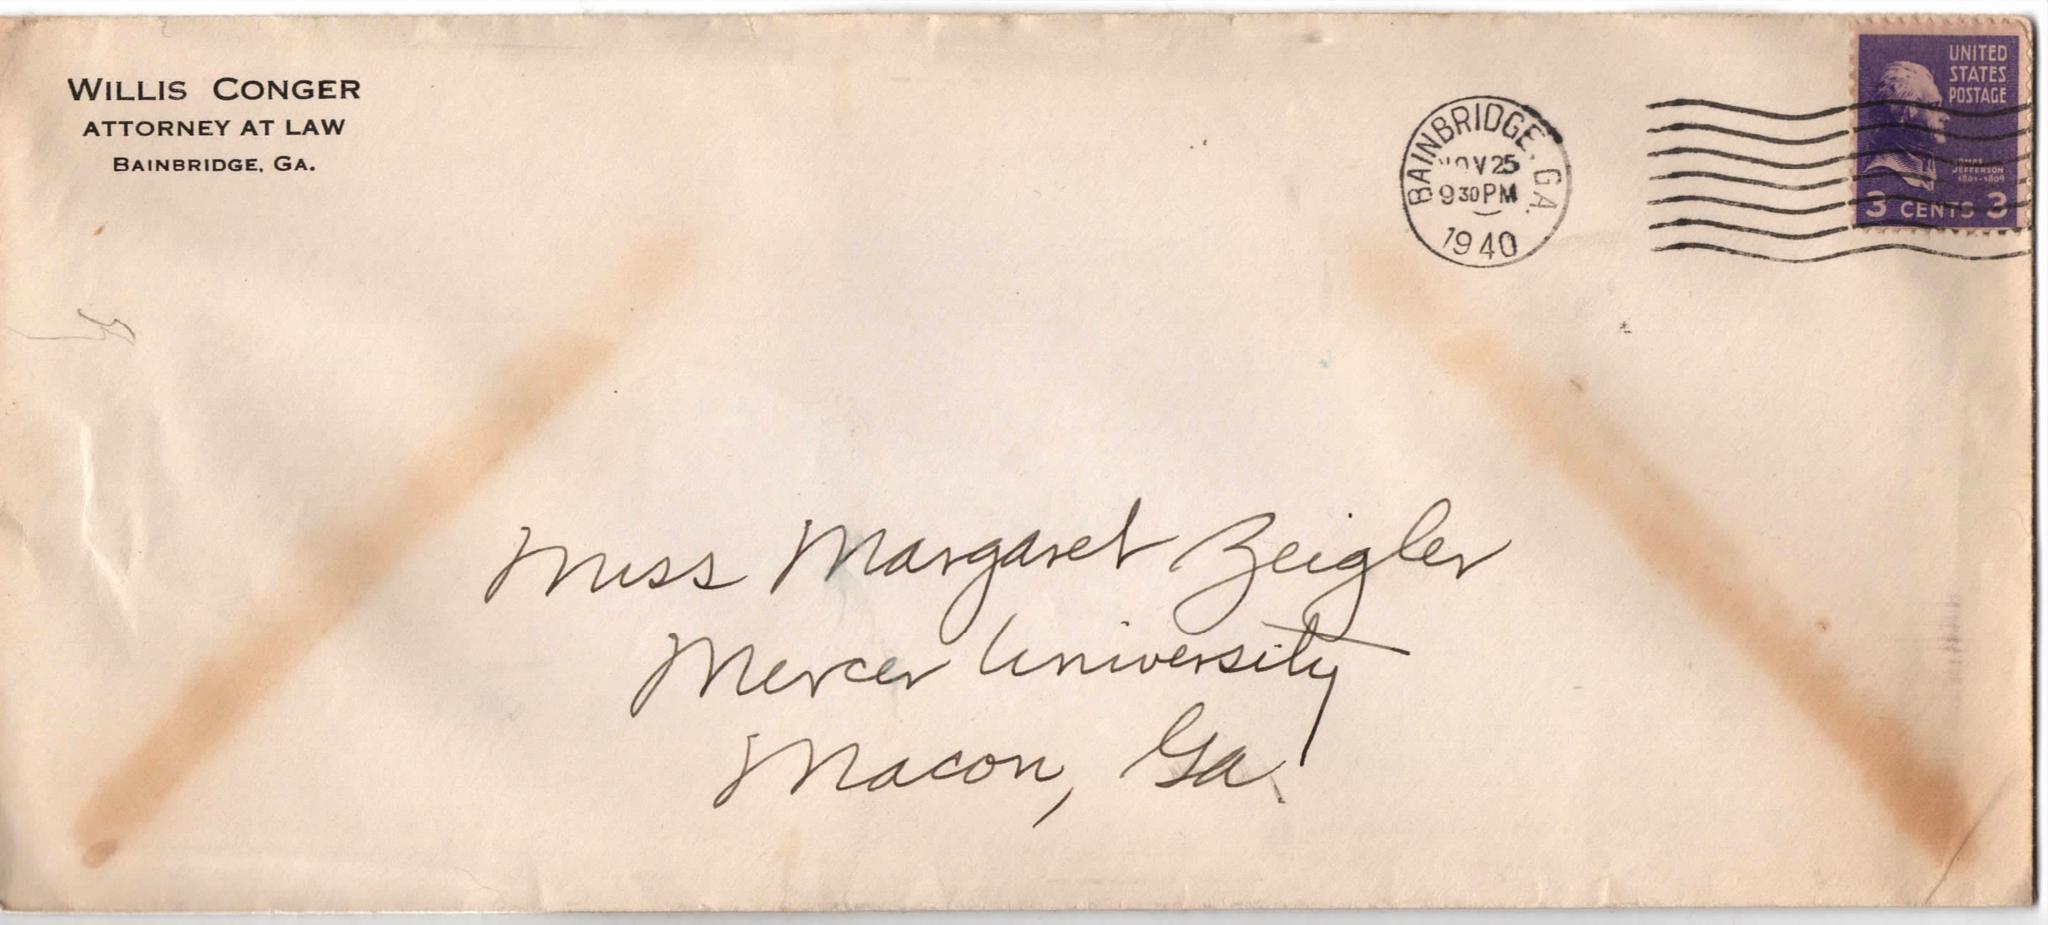 WILLIS CONGER
ATTORNEY AT LAW
BAINBRIDGE, GA.
BAINBRIDGE, GA.
NOV 25
9 30 PM
1940
UNITED
STATES
POSTAGE
THOMAS
JEFFERSON
1801-1809
3 CENTS 3
Miss Margaret Zeigler
Mercer University
Macon, Ga.